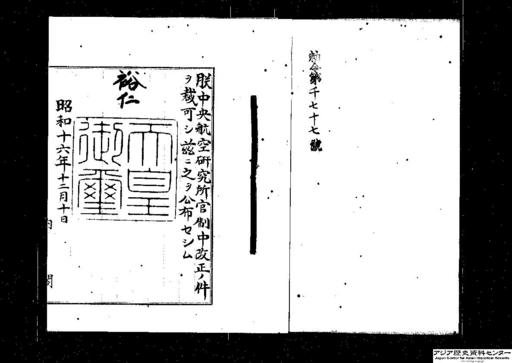 勅令第千七十七號
朕中央航空研究所官制中改正ノ件
ヲ裁可シ茲ニ之ヲ公布セシム
裕仁
天皇御璽
昭和十六年十二月十日
内閣
アジア歴史資料センター
Japan Center for Asian Historical Records